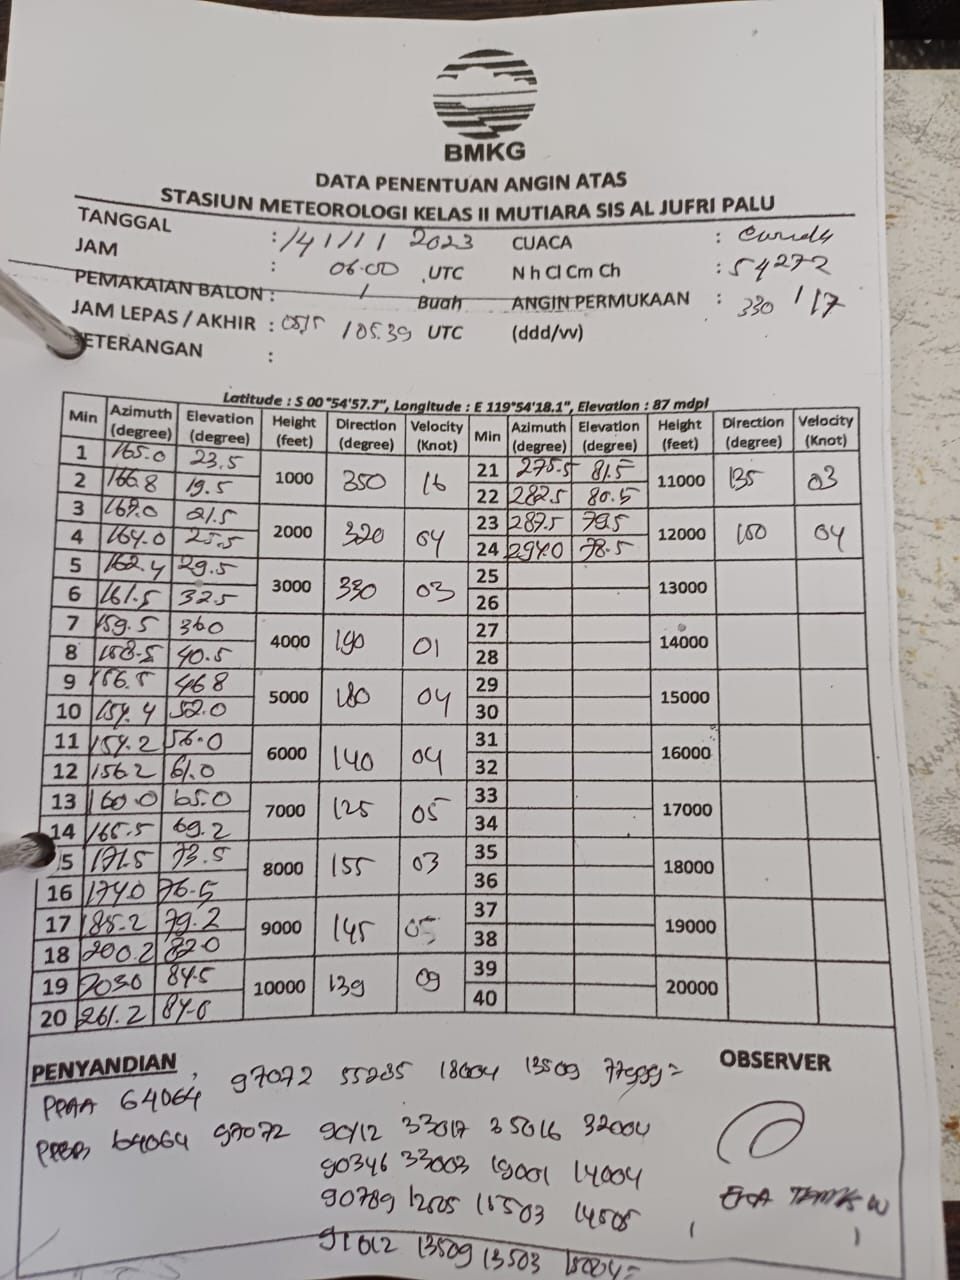 BMKG
DATA PENENTUAN ANGIN ATAS
STASIUN METEOROLOGI KELAS II MUTIARA SIS AL JUFRI PALU
TANGGAL : 14/11/2023 CUACA :
JAM : 06.00 UTC N h Cl Cm Ch : 54272
PEMAKAIAN BALON : 1 Buah ANGIN PERMUKAAN : 330 / 17
JAM LEPAS / AKHIR : 0515 / 05.39 UTC (ddd/vv)
KETERANGAN :
Latitude : S 00°54'57.7", Longitude : E 119°54'18.1", Elevation : 87 mdpl
Min Azimuth (degree) Elevation (degree) Height (feet) Direction (degree) Velocity (Knot) Min Azimuth (degree) Elevation (degree) Height (feet) Direction (degree) Velocity (Knot)
1 165.0 23.5 1000 350 16 21 275.5 81.5 11000 135 03
2 166.8 19.5 22 282.5 80.5
3 21.5 2000 320 04 23 287.5 79.5 12000 150 04
4 164.0 25.5 24 294.0 78.5
5 162.4 29.5 3000 330 03 25 13000
6 161.5 32.5 26
7 159.5 36.0 4000 190 01 27 14000
8 158.5 40.5 28
9 156.5 46.8 5000 180 04 29 15000
10 154.4 52.0 30
11 154.2 56.0 6000 140 04 31 16000
12 156.2 61.0 32
13 160.0 65.0 7000 125 05 33 17000
14 165.5 69.2 34
15 171.5 73.5 8000 155 03 35 18000
16 174.0 76.5 36
17 185.2 79.2 9000 145 05 37 19000
18 200.2 82.0 38
19 203.0 84.5 10000 139 09 39 20000
20 261.2 84.0 40
PENYANDIAN OBSERVER
PPAA 64064 97072 55285 18004 13509 77999=
PPBB 64064 97072 90/12 33017 35016 32004
90346 33003 19001 14004
90789 12505 15503 14505
91012 13509 13503 15004=